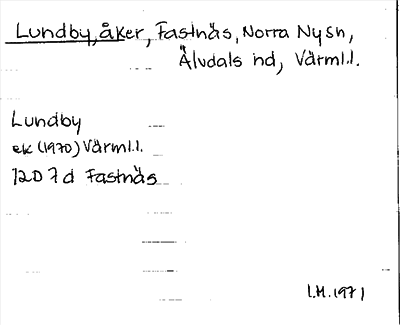 Lundby, åker, Fastnäs, Norra Ny sn,
Älvdals hd, Värml.l.
Lundby
ek (1970) Värml.l.
12D 7d Fastnäs
I.H. 1971